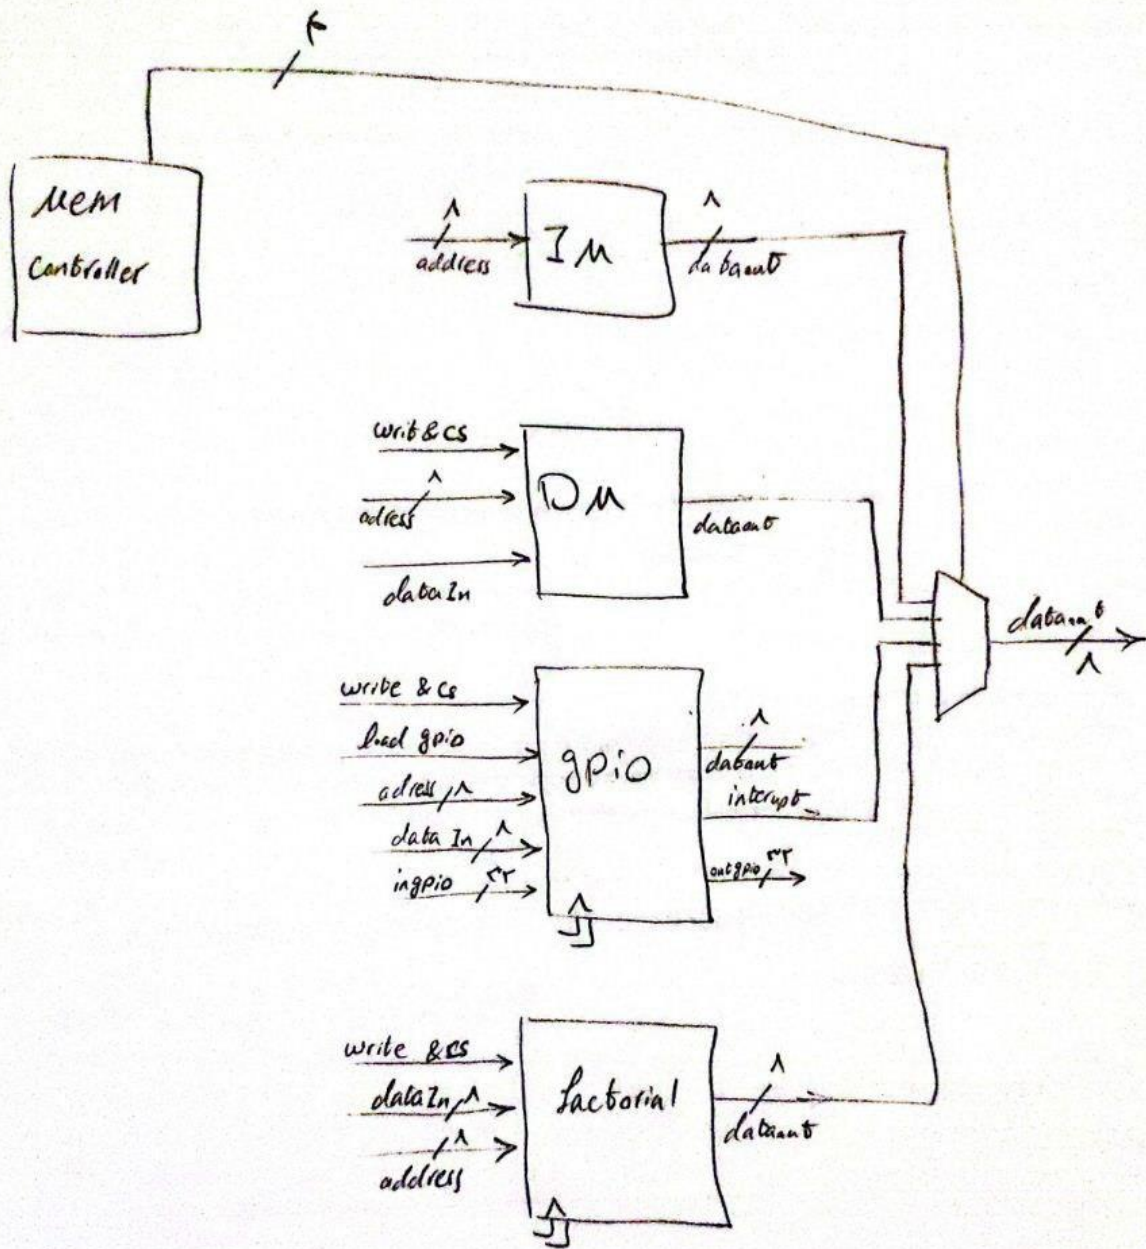 ۴
Mem
Controller
۸
address
IM
۸
dataout
writ & cs
۸
adress
dataIn
DM
dataout
dataout
۸
write & cs
load gpio
adress ۸
data In ۸
ingpio ۳۲
gpio
۸
dataout
interupt
outgpio ۳۲
write & cs
dataIn ۸
۸
address
factorial
۸
dataout